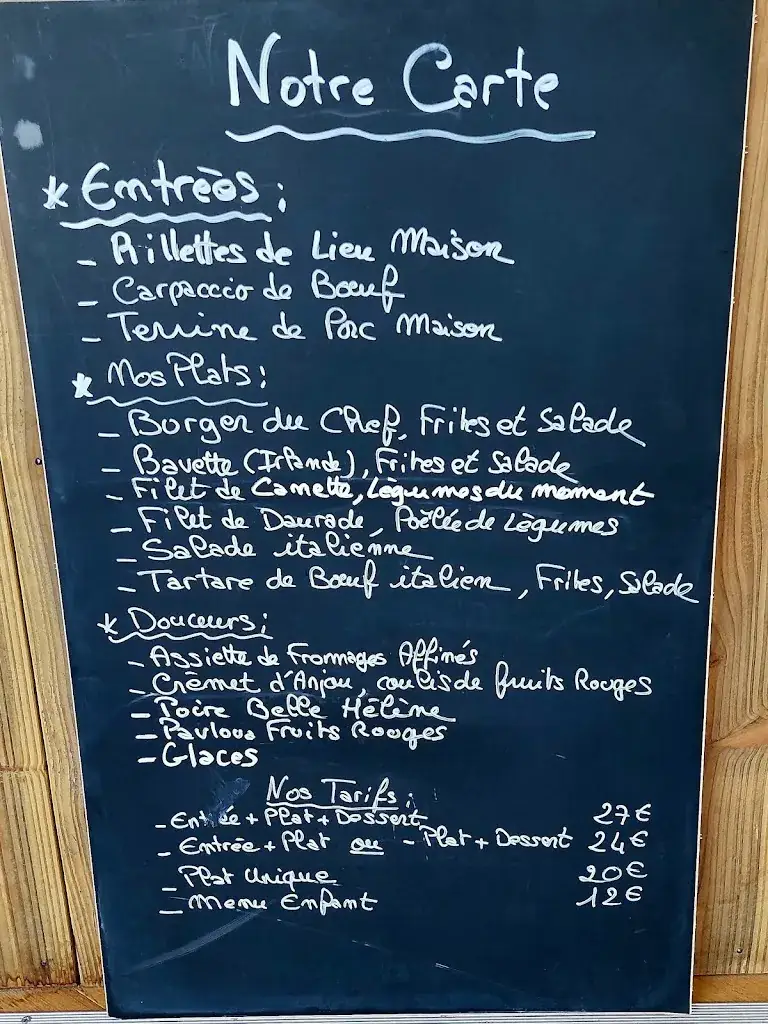 Notre Carte
* Entrées :
- Rillettes de Lieu Maison
- Carpaccio de Bœuf
- Terrine de Porc Maison
* Nos Plats :
- Burger du Chef, Frites et Salade
- Bavette (Irlande), Frites et Salade
- Filet de Canette, Légumes du moment
- Filet de Daurade, Poêlée de Légumes
- Salade italienne
- Tartare de Bœuf italien, Frites, Salade
* Douceurs :
- Assiette de Fromages Affinés
- Crèmet d'Anjou, coulis de fruits Rouges
- Poire Belle Hélène
- Pavlova Fruits Rouges
- Glaces
Nos Tarifs :
- Entrée + Plat + Dessert 27€
- Entrée + Plat ou - Plat + Dessert 24€
- Plat Unique 20€
- Menu Enfant 12€